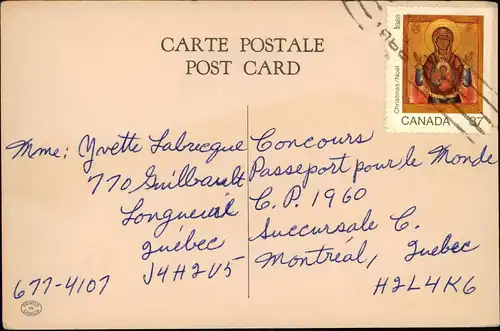 CARTE POSTALE
POST CARD
Christmas/Noël 1988
CANADA 37
Mme: Yvette Labrecque
770 Guilbault
Longueuil
Québec
J4H2V5
677-4107
Concours
Passeport pour le Monde
C.P. 1960
Succursale C.
Montréal, Quebec
H2L4K6